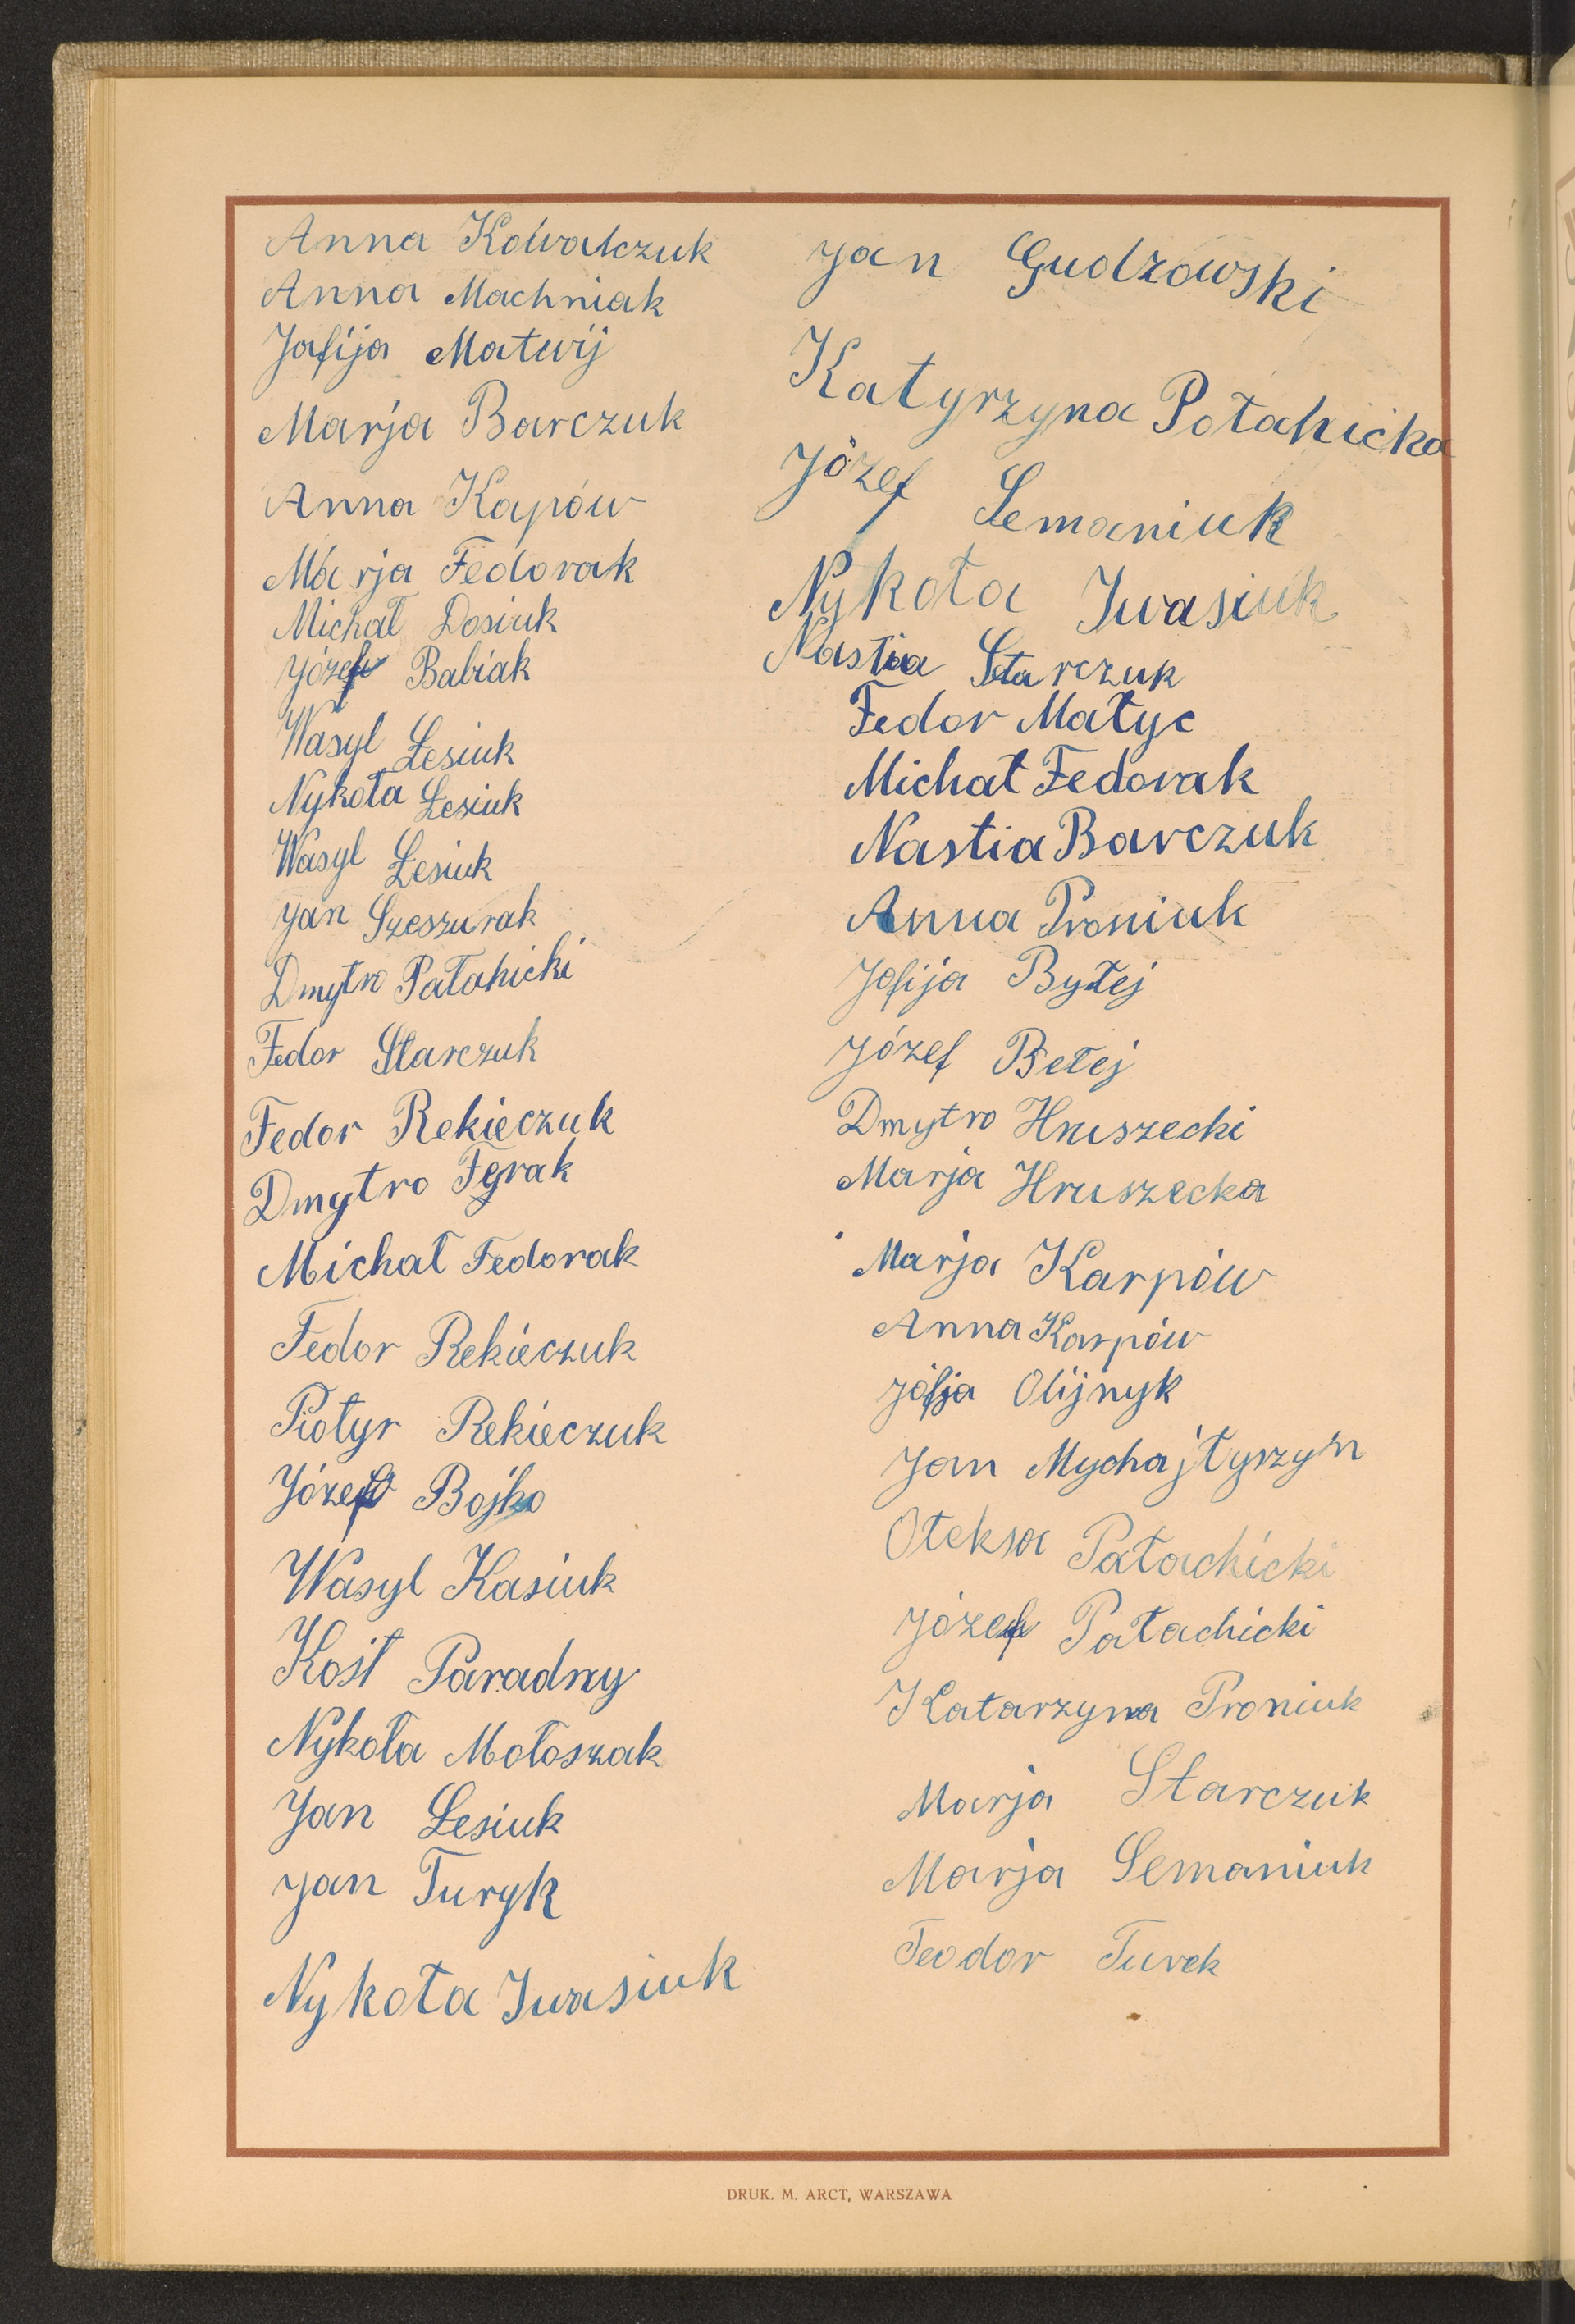 Anna Kowalczuk
Anna Machniak
Jofija Matwij
Marja Barczuk
Anna Kapów
Marja Fedorak
Michał Dosiuk
Józef Babiak
Wasyl Lesiuk
Nykoła Lesiuk
Wasyl Lesiuk
Jan Szeszurak
Dmytro Pałahicki
Fedor Starczuk
Fedor Rekieczuk
Dmytro Fgrak
Michał Fedorak
Fedor Rekieczuk
Piotyr Rekieczuk
Józef Bojko
Wasyl Kasiuk
Kost Paradny
Nykoła Mołoszak
Jan Lesiuk
Jan Turyk
Nykoła Iwasiuk
Jan Gudzowski
Katyrzyna Połahicka
Józef Semaniuk
Nykoła Iwasiuk
Nastia Starczuk
Fedor Małyc
Michał Fedorak
Nastia Barczuk
Anna Proniuk
Jofija Byłej
Józef Bełej
Dmytro Hruszecki
Marja Hruszecka
Marja Karpów
Anna Karpów
Jofja Olijnyk
Jan Mychajłyszyn
Ołeksa Pałachicki
Józef Pałachicki
Katarzyna Proniuk
Marja Starczuk
Marja Semaniuk
Teodor Turek
DRUK. M. ARCT, WARSZAWA